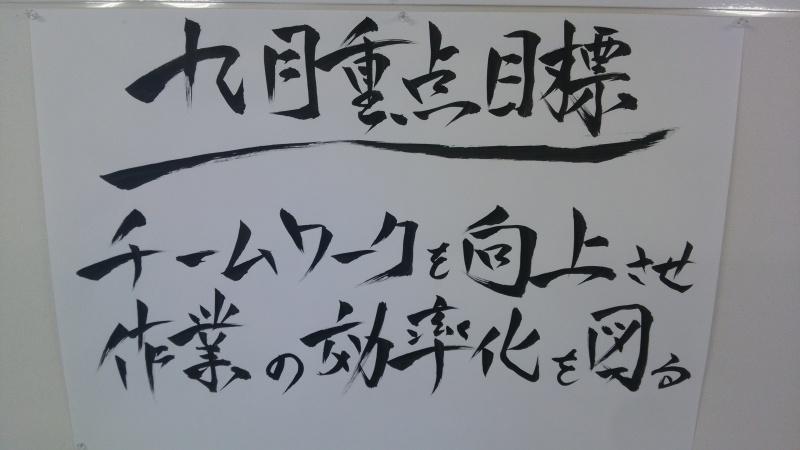 九月重点目標
チームワークを向上させ
作業の効率化を図る